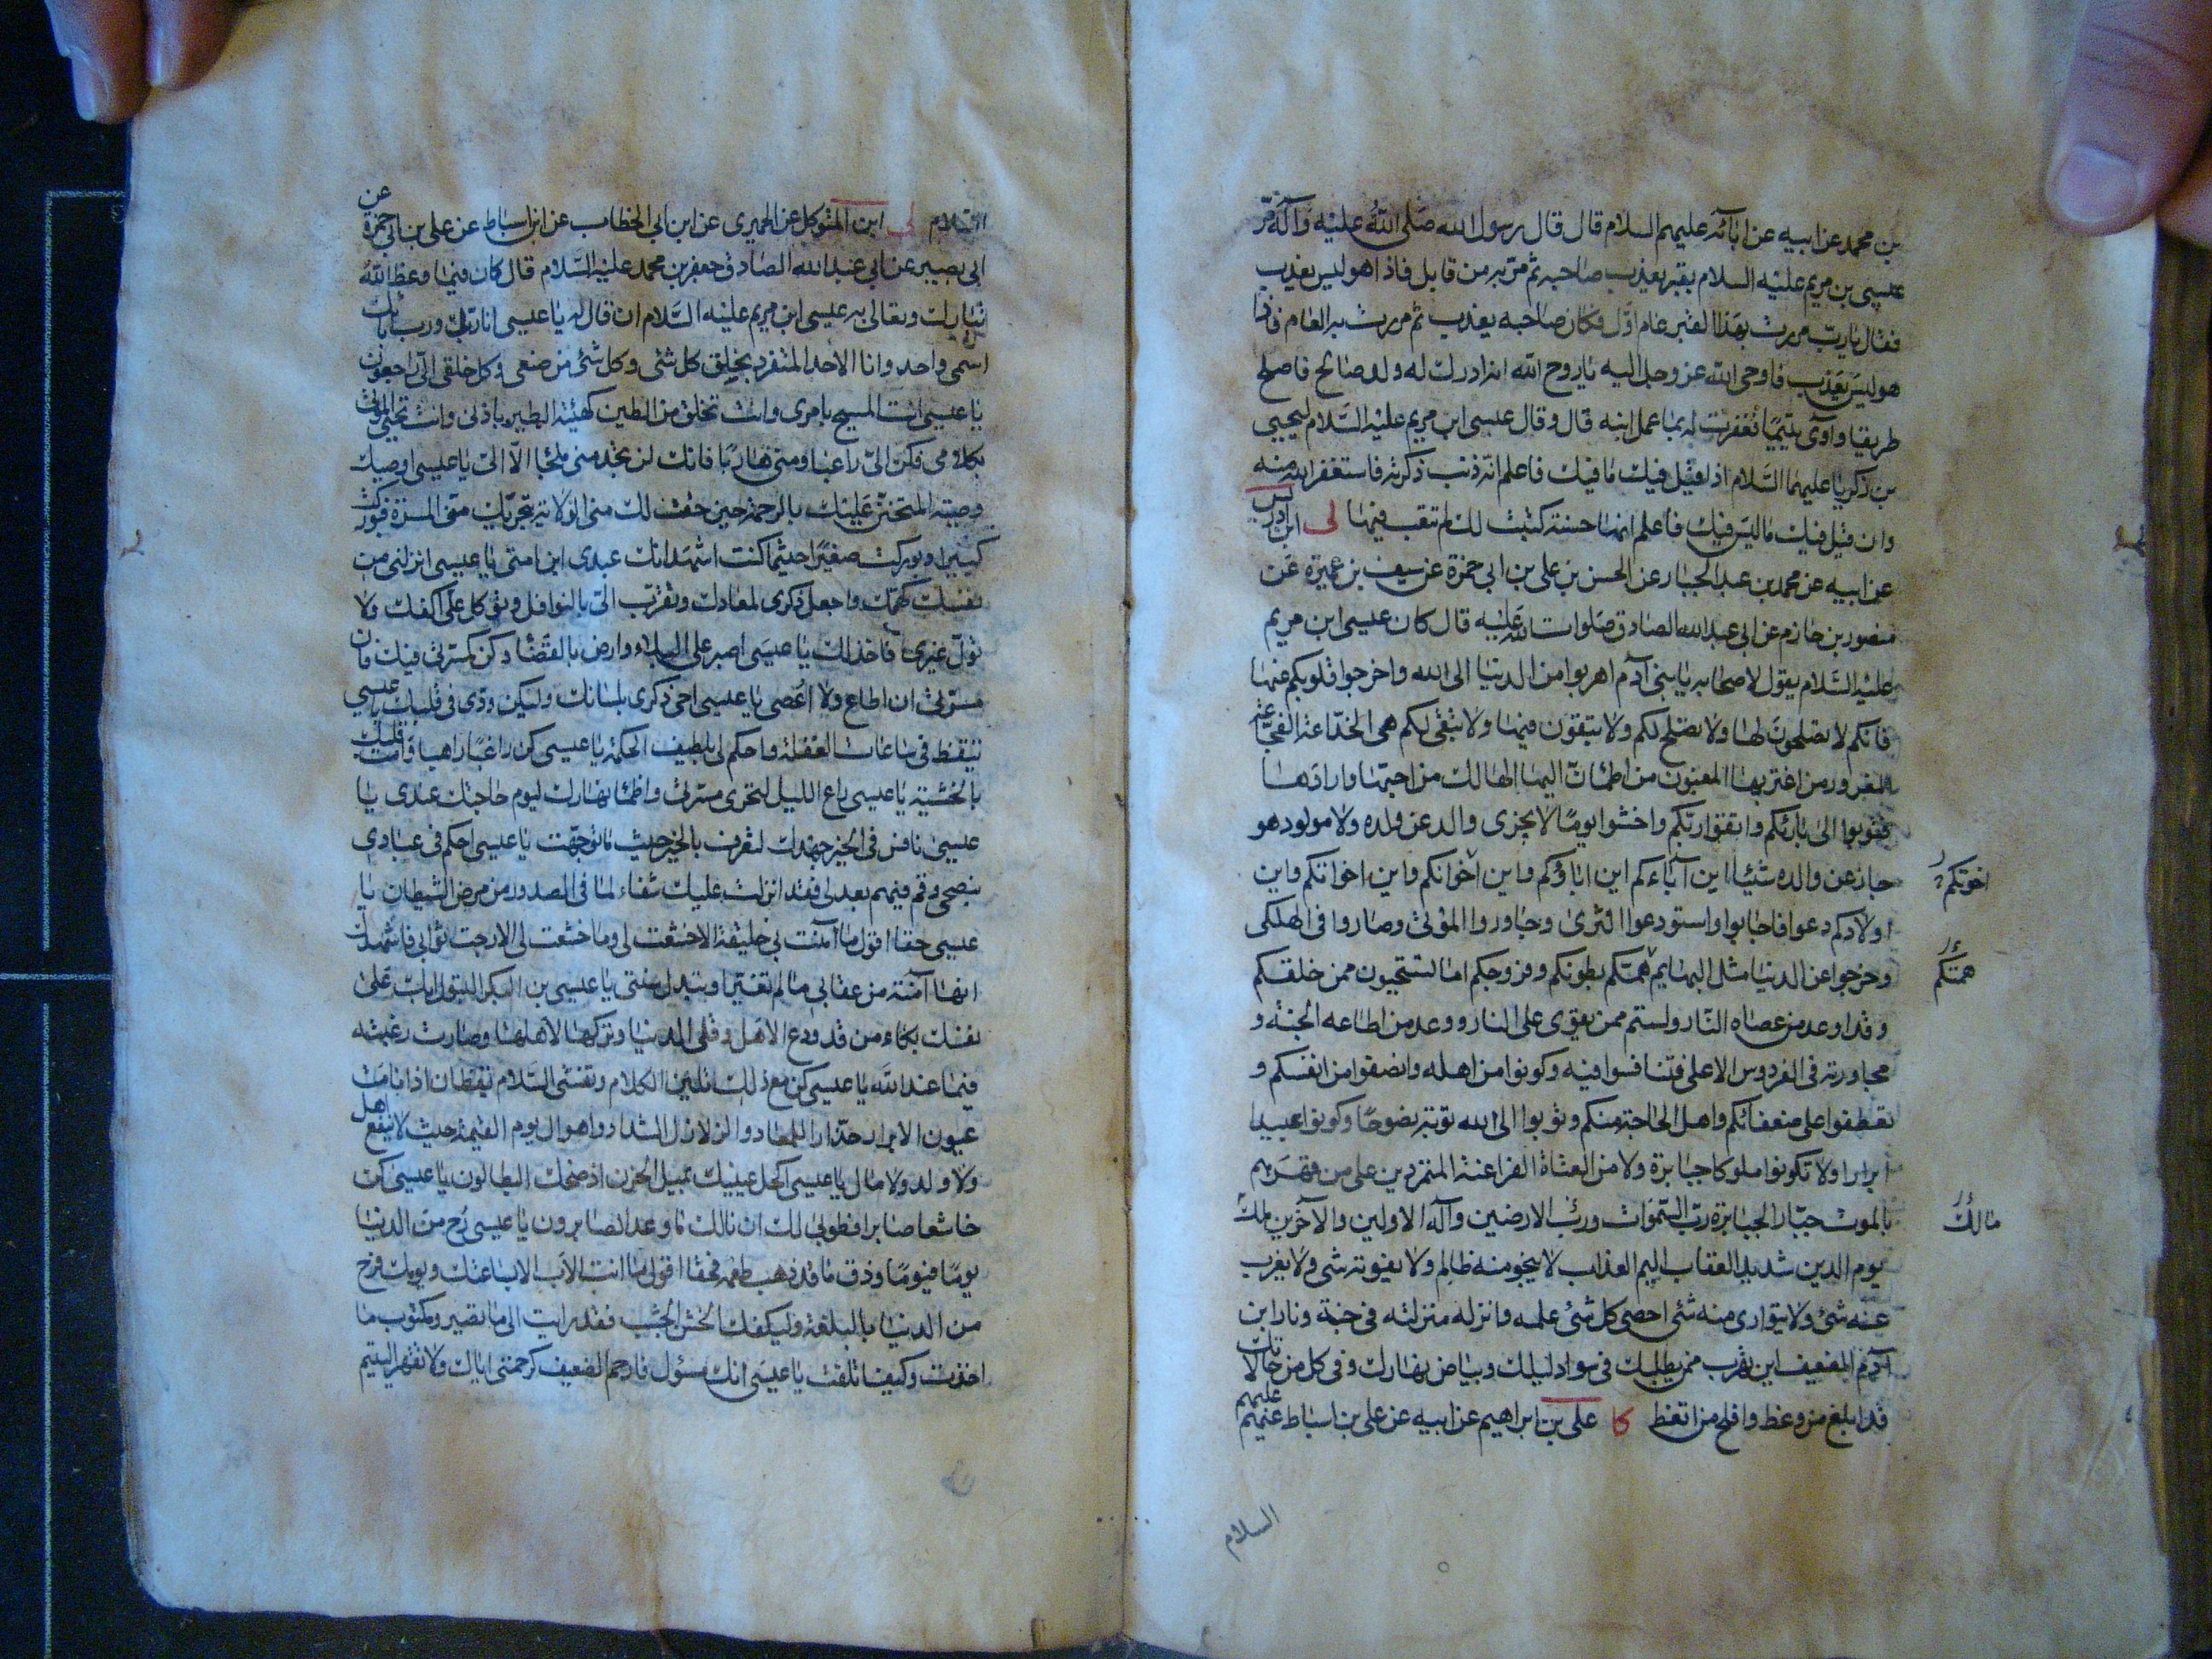 بن محمد عن ابيه عن ابائه عليهم السلام قال قال رسول الله صلى الله عليه وآله مرّ
عيسى بن مريم عليه السلام بقبر يعذب صاحبه ثم مرّ به من قابل فاذا هو ليس يعذب
فقال يا ربّ مررت بهذا القبر عام اوّل فكان صاحبه يعذب ثم مررت به العام فاذا
هو ليس يعذب فاوحى الله عز وجل اليه يا روح الله انه ادرك له ولد صالح فاصلح
طريقا وآوى يتيمًا فغفرت له بما عمل ابنه قال وقال عيسى ابن مريم عليه السّلام ليحيى
بن زكريا عليهما السّلام اذا قيل فيك ما فيك فاعلم انه ذنب ذكرته فاستغفر الله منه
وان قيل فيك ما ليس فيك فاعلم انها حسنة كتبت لك لم تتعب فيها لى ابن ادريس
عن ابيه عن محمد بن عبد الجبار عن الحسن بن على بن ابي حمزة عن سيف بن عميرة عن
منصور بن حازم عن ابي عبد الله الصادق صلوات الله عليه قال كان عيسى ابن مريم
عليه السّلام يقول لاصحابه يا بنى آدم اهربوا من الدنيا الى الله واخرجوا قلوبكم عنها
فانكم لا تصلحون لها ولا تصلح لكم ولا تبقون فيها ولا تبقى لكم هى الخدّاعة الفجّاعة
المغرور من اغتر بها المغبون من اطمأنّ اليها الهالك من احبّها وارادها
فتوبوا الى بارئكم واتقوا ربّكم واخشوا يومًا لا يجزى والد عن ولده ولا مولود هو
جاز عن والده شيئا اين آباءكم اين امّهاتكم واين اخوانكم واين اخواتكم واين
اخوتكم
اولادكم دعوا فاجابوا واستودعوا الثرى وجاوروا الموتى وصاروا فى الهلكى
وخرجوا عن الدنيا مثل البهايم همّتكم بطونكم وفروجكم اما تستحيون ممن خلقكم
همتكم
وقد اوعد من عصاه النّار ولستم ممن يقوى على النار ووعد من اطاعه الجنة و
مجاورته فى الفردوس الاعلى فتنافسوا فيه وكونوا من اهله وانصفوا من انفسكم و
تعطفوا على ضعفائكم واهل الحاجة منكم وتوبوا الى الله توبة نصوحًا وكونوا عبيدا
ابرارا ولا تكونوا ملوكا جبابرة ولا من العتاة الفراعنة المتمردين على من قهرهم
بالموت جبّار الجبابرة ربّ السّموات وربّ الارضين وآله الاولين والآخرين ملك
مالك
يوم الدين شديد العقاب اليم العذاب لا ينجو منه ظالم ولا يفوته شى ولا يعزب
عنه شئ ولا يتوارى منه شئ احصى كل شئ علمه وانزله منزلته فى جنة ونار ابن
آدم الضعيف اين تهرب ممن يطلبك فى سواد ليلك وبياض نهارك وفى كل من حالاتك
قد ابلغ من وعظ وافلح من اتعظ كا على بن ابراهيم عن ابيه عن على بن اسباط عنهم عليهم
السلام
السّلام لى ابن المتوكل عن الحميرى عن ابن ابي الخطاب عن ابن اسباط عن على بن ابي حمزة عن
ابي بصير عن ابي عبد الله الصادق جعفر بن محمد عليه السّلام قال كان فيما وعظ الله
تبارك وتعالى به عيسى ابن مريم عليه السّلام ان قال له يا عيسى انا ربّك ورب ابائك
اسمى واحد وانا الاحد المتفرد بخلق كل شئ وكل شئ من صنعى وكل خلقى الىّ راجعون
يا عيسى انت المسيح بامرى وانت تخلق من الطين كهيئة الطير باذنى وانت تحيى الموتى
بكلامى فكن الىّ راغبا ومنى هاربًا فانك لن تجد منى ملجا الّا الىّ يا عيسى اوصيك
وصية المتحنن عليك بالرحمة حين حقت لك منى الولاية بتحريك منى المسرة فبوركت
كبيرا وبوركت صغيرًا حيثما كنت اشهد انك عبدى ابن امتى يا عيسى انزلنى من
نفسك كهمّك واجعل ذكرى لمعادك وتقرّب الىّ بالنوافل وتوكل علىّ اكفك ولا
تولّ غيرى فاخذلك يا عيسى اصبر على البلاء وارض بالقضاء وكن كمسرّتى فيك فان
مسرّتى ان اطاع ولا اعصى يا عيسى احى ذكرى بلسانك وليكن ودّى فى قلبك يا عيسى
تيقظ فى ساعات الغفلة واحكم لى بلطيف الحكمة يا عيسى كن راغبًا راهبا وامت قلبك
بالخشية يا عيسى راع الليل لتحرى مسرتى واظمأ نهارك ليوم حاجتك عندى يا
عيسى نافس فى الخير جهدك لتعرف بالخير حيث ما توجّهت يا عيسى احكم فى عبادى
بنصحى وقم فيهم بعدلى فقد انزلت عليك شفاء لما فى الصدور من مرض الشيطان يا
عيسى حقا اقول ما آمنت بى خليقة الا خشعت لى وما خشعت لى الا رجت ثوابى فاشهدك
انها آمنة من عقابى ما لم تغيّر او تبدل سنّتى يا عيسى بن البكر البتول ابك على
نفسك بكاء من قد ودع الاهل وقلى الدنيا وتركها لاهلها وصارت رغبته
فيما عند الله يا عيسى كن مع ذلك تلين الكلام وتفشى السّلام يقظان اذا نامت
عيون الابرار حذارا للمعاد والزلازل الشداد واهوال يوم القيمة حيث لا ينفع اهل
ولا ولد ولا مال يا عيسى اكحل عينيك بميل الحزن اذا ضحك البطالون يا عيسى كن
خاشعا صابرا فطوبى لك ان نالك ما وعد الصابرون يا عيسى رح من الدنيا
يومًا فيومًا وذق ما قد ذهب طعمه فحقا اقول ما انت الا بساعتك ويومك فرح
من الدنيا بالبلغة وليكفك الخشن الجشب فقد رايت الى ما تصير ومكتوب ما
اخذت وكيف اتلفت يا عيسى انك مسؤل فارحم الضعيف كرحمتى اياك ولا تقهر اليتيم